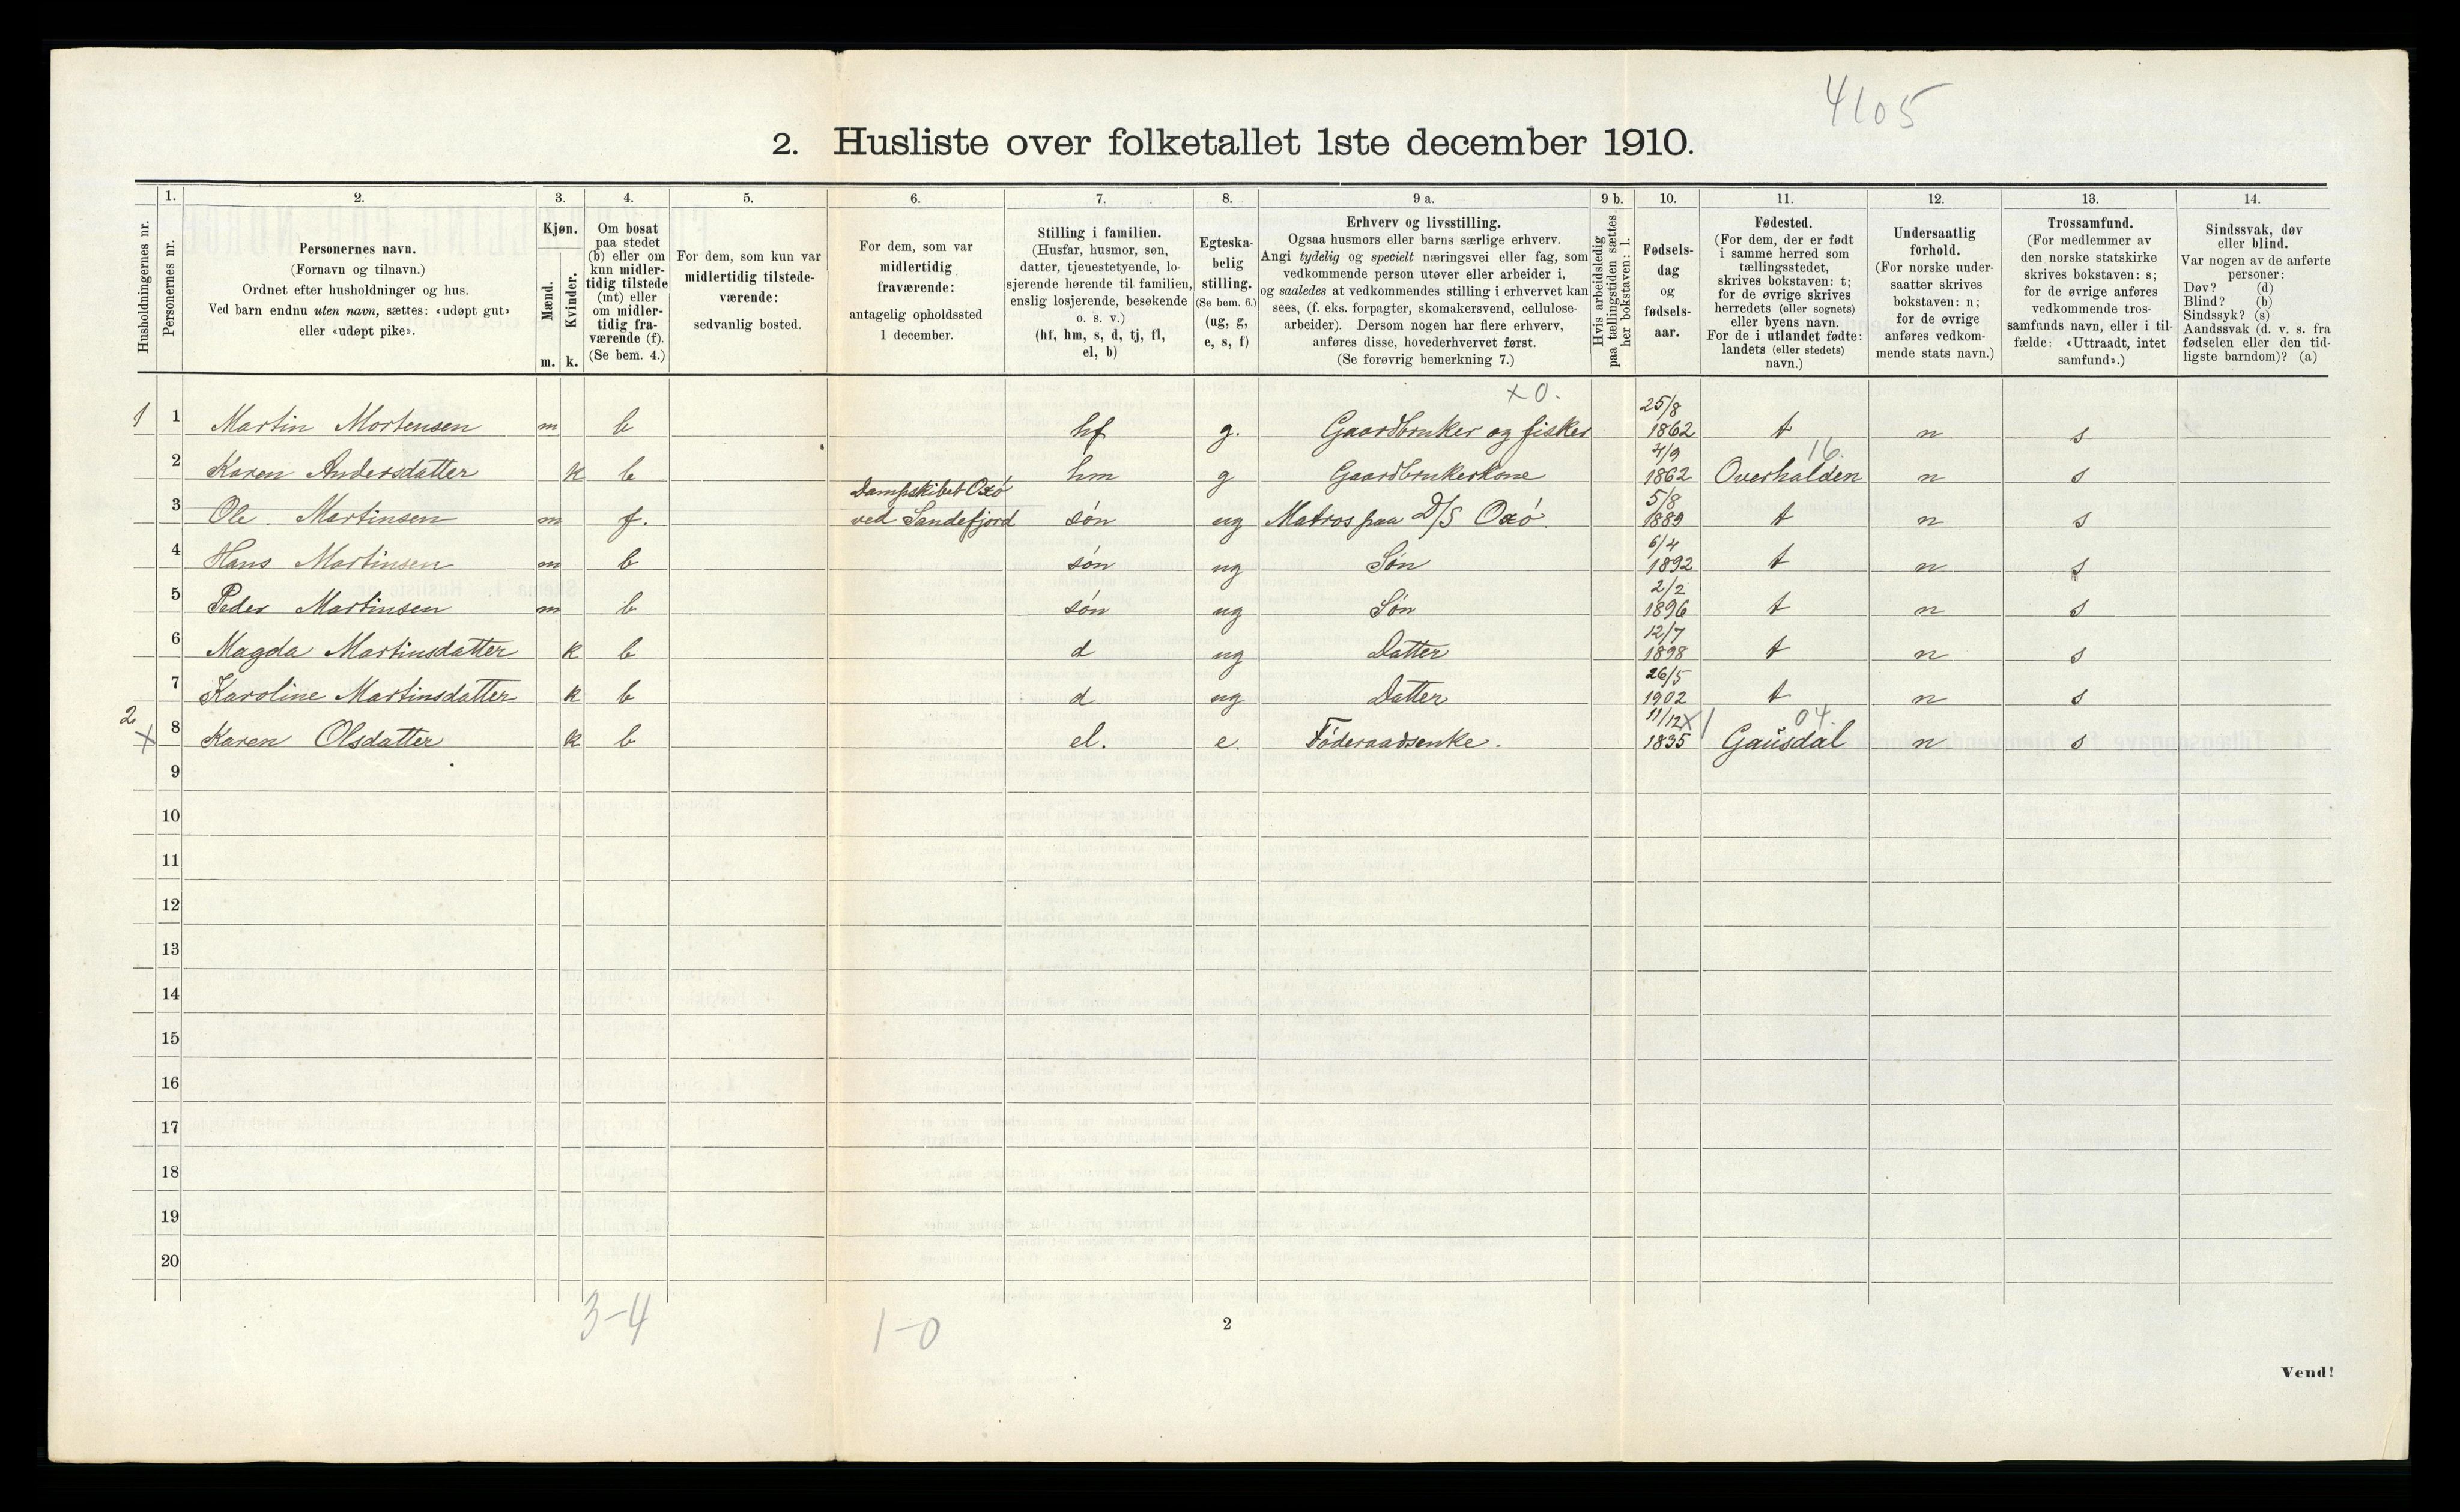 4105
2. Husliste over folketallet 1ste december 1910.
Husholdningernes nr.
1.
Personernes nr.
2.
Personernes navn.
(Fornavn og tilnavn.)
Ordnet efter husholdninger og hus.
Ved barn endnu uten navn, sættes: «udøpt gut»
eller «udøpt pike».
3.
Kjøn.
Mænd.
Kvinder.
m. k.
4.
Om bosat
paa stedet
(b) eller om
kun midler-
tidig tilstede
(mt) eller
om midler-
tidig fra-
værende (f).
(Se bem. 4.)
5.
For dem, som kun var
midlertidig tilstede-
værende:
sedvanlig bosted.
6.
For dem, som var
midlertidig
fraværende:
antagelig opholdssted
1 december.
7.
Stilling i familien.
(Husfar, husmor, søn,
datter, tjenestetyende, lo-
sjerende hørende til familien,
enslig losjerende, besøkende
o. s. v.)
(hf, hm, s, d, tj, fl,
el, b)
8.
Egteska-
belig
stilling.
(Se bem. 6.)
(ug, g,
e, s, f)
9 a.
Erhverv og livsstilling.
Ogsaa husmors eller barns særlige erhverv.
Angi tydelig og specielt næringsvei eller fag, som
vedkommende person utøver eller arbeider i,
og saaledes at vedkommendes stilling i erhvervet kan
sees, (f. eks. forpagter, skomakersvend, cellulose-
arbeider). Dersom nogen har flere erhverv,
anføres disse, hovederhvervet først.
(Se forøvrig bemerkning 7.)
9 b.
Hvis arbeidsledig
paa tællingstiden sættes
her bokstaven: l.
10.
Fødsels-
dag
og
fødsels-
aar.
11.
Fødested.
(For dem, der er født
i samme herred som
tællingsstedet,
skrives bokstaven: t;
for de øvrige skrives
herredets (eller sognets)
eller byens navn.
For de i utlandet fødte:
landets (eller stedets)
navn.)
12.
Undersaatlig
forhold.
(For norske under-
saatter skrives
bokstaven: n;
for de øvrige
anføres vedkom-
mende stats navn.)
13.
Trossamfund.
(For medlemmer av
den norske statskirke
skrives bokstaven: s;
for de øvrige anføres
vedkommende tros-
samfunds navn, eller i til-
fælde: «Uttraadt, intet
samfund».)
14.
Sindssvak, døv
eller blind.
Var nogen av de anførte
personer:
Døv? (d)
Blind? (b)
Sindssyk? (s)
Aandssvak (d. v. s. fra
fødselen eller den tid-
ligste barndom)? (a)
x 0.
1 1 Martin Mortensen m b hf g. Gaardbruker og fisker 25/8 1862 t n s
2 Karen Andersdatter k b hm g Gaardbrukerkone 4/9 1862 16. Overhalden n s
3 Ole Martinsen m f. Dampskibet Oxó ved Sandefjord són ug Matros paa D/S Oxó. 5/8 1889 t n s
4 Hans Martinsen m b són ug Són 6/4 1892 t n s
5 Peder Martinsen m b són ug Són 2/2 1896 t n s
6 Magda Martinsdatter k b d ug Datter 12/7 1898 t n s
7 Karoline Martinsdatter k b d ug Datter 26/5 1902 t n s
2 x 8 Karen Olsdatter k b el. e. Fóderaadsenke. 11/12 x 1835 04. Gausdal n s
9
10
11
12
13
14
15
16
17
18
19
20
3-4
1-0
2
Vend!